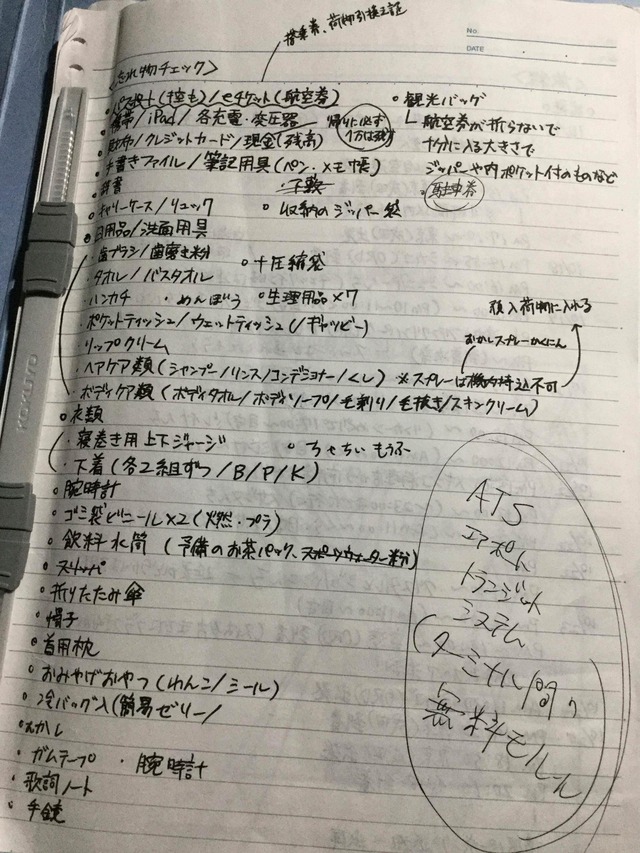 搭乗券、荷物引換証
No.
DATE
<忘れ物チェック>
パスポート(控も)/eチケット(航空券)
携帯/iPad/各充電・変圧器
帰りに必ず
1万は残す
財布/クレジットカード/現金(残高)
手書きファイル/筆記用具(ペン・メモ帳)
辞書
キャリーケース/リュック
収納のジッパー袋
日用品/洗面用具
・歯ブラシ/歯磨き粉
+圧縮袋
・タオル/バスタオル
・ハンカチ ・めんぼう
生理用品×7
・ポケットティッシュ/ウェットティッシュ(/ギャッビー)
・リップクリーム
・ヘアケア類(シャンプー/リンス/コンデショナー/くし)
※スプレーは機内持込不可
預入荷物に入れる
・ボディケア類(ボディタオル/ボディソープ/毛剃り/毛抜き/スキンクリーム)
衣類
・寝巻き用上下ジャージ
ちゃちいもうふ
・下着(各2組ずつ/B/P/K)
腕時計
ゴミ袋ビニール×2(燃・プラ)
飲料水筒(予備のお茶パック、スポーツウォーター粉)
スリッパ
折りたたみ傘
帽子
首用枕
おみやげおやつ(わんこ/シール)
冷バッグ入(簡易ゼリー/
むかし
ガムテープ ・腕時計
歌詞ノート
手鏡
観光バッグ
航空券が折らないで
十分に入る大きさで
ジッパーや内ポケット付のものなど
駐車券
ATS
エアポート
トランジット
システム
(ターミナル間
無料モルール
KOKUYO